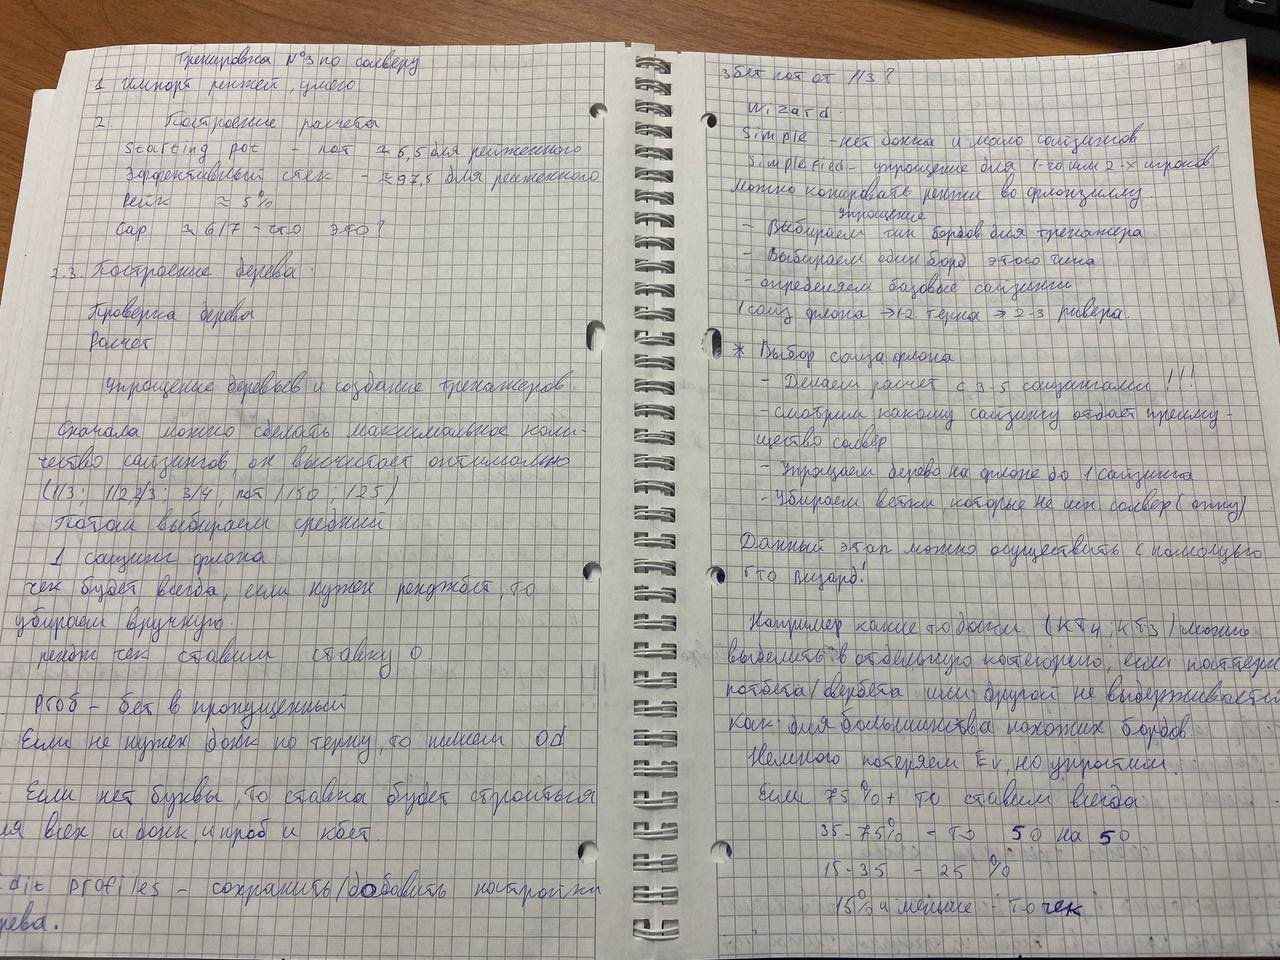 Тренировка №3 по солверу
1 Импорт ренжей, умего
2 Построение расчета
Starting pot - пот ≈ 5,5 для рейженного
Эффективный стек - ≈ 97,5 для рейженного
Рейк ≈ 5%
Cap ≈ 6/7 - что это?
2.3. Построение дерева.
Проверка дерева
Расчет
Упрощение деревьев и создание тренажеров
Сначала можно сделать максимальное коли-
чество сайзингов, он высчитает оптимально
(1/3; 1/2, 2/3; 3/4, пот / 150; 125)
Потом выбираем средний
1 сайзинг флопа
чек будет всегда, если нужен ренджбет, то
убираем вручную.
рендж чек ставим ставку 0.
Prob - бет в пропущенный
Если не нужен донк по терну, то пишем 0d
Если нет буквы, то ставка будет строиться
ля всех и донк и проб и кбет.
dit profiles - сохранить/добавить настройки
рева.
3бет пот от 1/3?
Wizard.
Simple - нет донка и мало сайзингов
Simplefied - упрощение для 1-го или 2-х игроков
Можно копировать ренжи во флопзиллу
Упрощение
- Выбираем тип бордов для тренажера
- Выбираем один борд этого типа
- определяем базовые сайзинги
1 сайз флопа → 1-2 терна → 2-3 ривера.
* Выбор сайза флопа
- Делаем расчет с 3-5 сайзингами!!!
- смотрим какому сайзингу отдает преиму-
щество солвер
- Упрощаем дерево на флопе до 1 сайзинга
- Убираем ветки которые не исп солвер (оппу)
Данный этап можно осуществить с помощью
гто визард!
Например какие то доски (KT4; KT3) можно
выделить в отдельную категорию, если паттерн
потбета/овербета или другой не выдерживается
как для большинства похожих бордов
Немного потеряем Ev, но упростим.
Если 75%+ то ставим всегда
35-75% - то 50 на 50
15-35 - 25%
15% и меньше - то чек